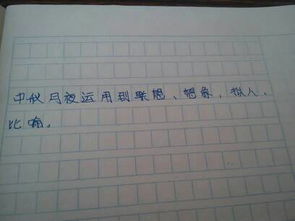 中秋月夜运用到联想、想象、拟人、
比喻。